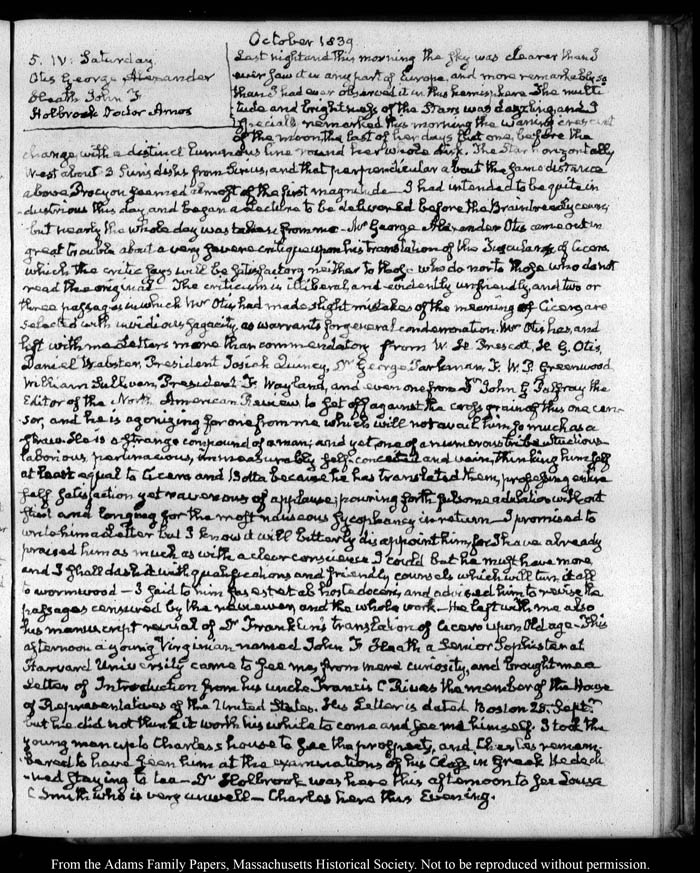 October 1839
5. IV: Saturday.
Otis George Alexander
Heath John F
Holbrook Doctor Amos
Last night and this morning the sky was clearer than I
ever saw it in any part of Europe, and more remarkably so
than I had ever observed it in this hemisphere. The multi-
tude and brightness of the Stars was dazzling, and I
specially remarked this morning the waning crescent
of the moon, the last of her days that one, before the
change, with a distinct luminous line round her whole disk. The Star horizontally
West about 3 Suns disks from Sirius, and that perpendicular about the same distance
above Procyon seemed almost of the first magnitude— I had intended to be quite in-
dustrious this day and began a Lecture to be delivered before the Braintree Lyceum;
but nearly the whole day was taken from me— Mr George Alexander Otis came out in
great trouble about a very severe critique upon his translation of the Tusculans of Cicero,
which the critic says will be satisfactory neither to those who do nor to those who do not
read the original— The criticism is illiberal, and evidently unfriendly, and two or
three passages in which Mr Otis had made slight mistakes of the meaning of Cicero are
selected with invidious sagacity, as warrants for general condemnation. Mr Otis has, and
left with me Letters more than commendatory from W. H. Prescott, H. G. Otis,
Daniel Webster, President Josiah Quincy, Dr George Parkman, F. W. P. Greenwood
William Sullivan, President F. Wayland, and even one from Dr John G Palfrey the
Editor of the North American Review to set off against the cross grain of this one cen-
sor, and he is agonizing for one from me which will not avail him so much as a
straw. He is a strange compound of a man; and yet one of a numerous tribe. Studious
laborious, pertinacious, immeasurably self conceited and vain, thinking himself
at least equal to Cicero and Botta because he has translated them, professing entire
self satisfaction yet ravenous of applause; pouring forth fulsome adulation without
stint and longing for the most nauseous sycophancy in return— I promised to
write him a Letter but I know it will bitterly disappoint him, for I have already
praised him as much as with a clear conscience I could but he must have more,
and I shall dash it with qualifications and friendly counsels which will turn it all
to wormwood— I said to him fas est et ab hoste doceri, and advised him to revise the
passages censured by the reviewer, and the whole work— He left with me also
his manuscript revisal of Dr Franklin's translation of Cicero upon Old age— This
afternoon a young Virginian named John F Heath a Senior Sophister at
Harvard University came to see me, from mere curiosity, and brought me a
Letter of Introduction from his uncle Francis E Rives the member of the House
of Representatives of the United States. His Letter is dated Boston 28. Septr
but he did not think it worth his while to come and see me himself. I took the
young man up to Charles's house to see the prospect, and Charles remem-
bered to have seen him at the examinations of his Class in Greek. He decli-
-ned staying to tea— Dr Holbrook was here this afternoon to see Louisa
C Smith who is very unwell— Charles here this Evening.
From the Adams Family Papers, Massachusetts Historical Society. Not to be reproduced without permission.